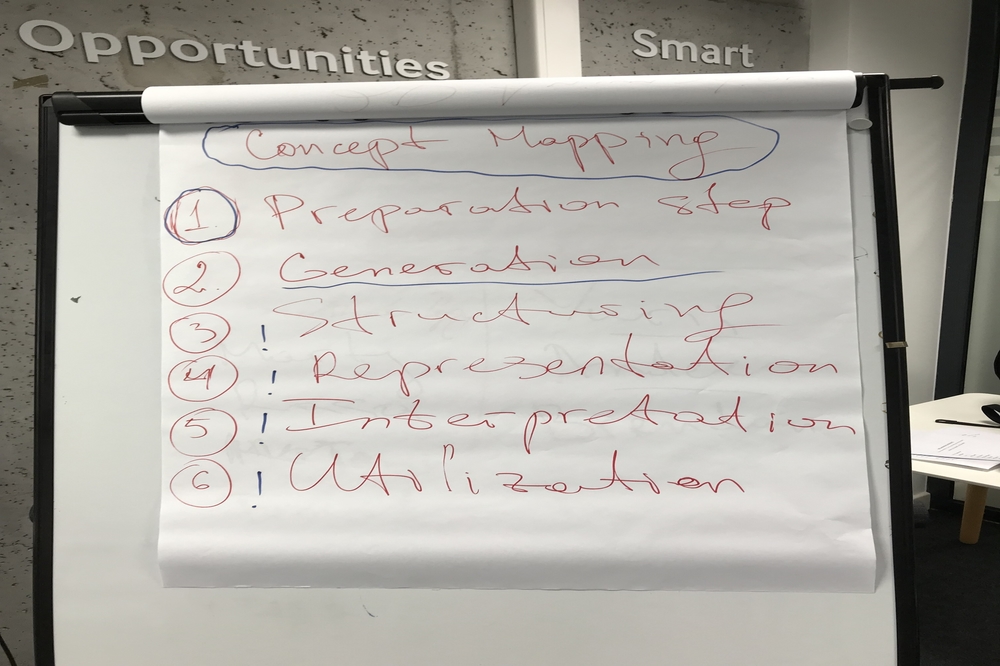 Opportunities
Smart
Concept Mapping
1. Preparation step
2. Generation
3 ! Structusing
4 ! Representation
5 ! Interpretation
6 ! Utilization